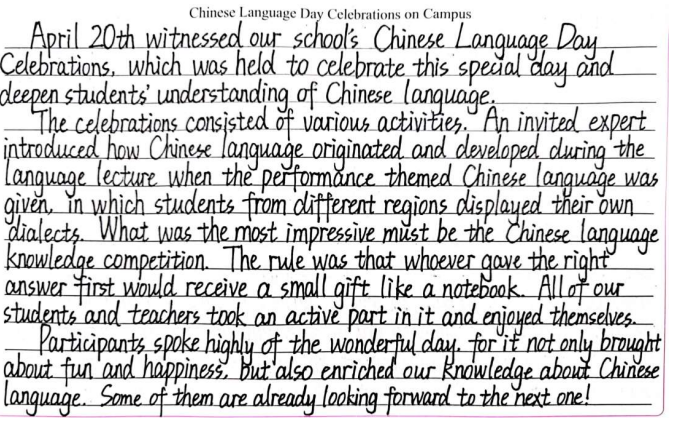 Chinese Language Day Celebrations on Campus
April 20th witnessed our school's Chinese Language Day
Celebrations, which was held to celebrate this special day and
deepen students' understanding of Chinese language.
The celebrations consisted of various activities. An invited expert
introduced how Chinese language originated and developed during the
language lecture when the performance themed Chinese language was
given, in which students from different regions displayed their own
dialects. What was the most impressive must be the Chinese language
knowledge competition. The rule was that whoever gave the right
answer first would receive a small gift like a notebook. All of our
students and teachers took an active part in it and enjoyed themselves.
Participants spoke highly of the wonderful day, for it not only brought
about fun and happiness, but also enriched our knowledge about Chinese
language. Some of them are already looking forward to the next one!